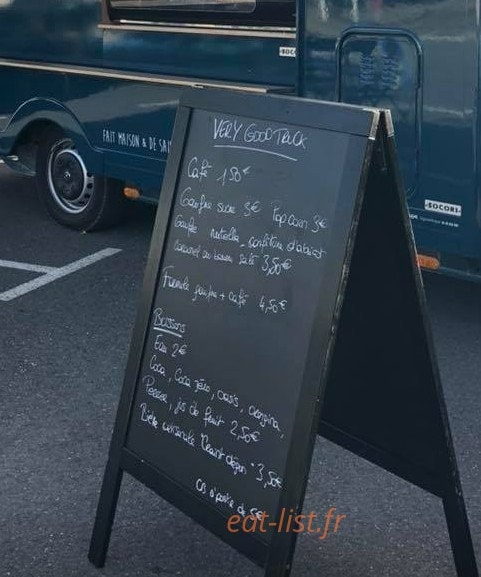 SOCOR
FAIT MAISON & DE SAI
SOCORE
VERY GOOD TRUCK
Café 1,50€
Gaufre sucre 3€ Pop corn 3€
Gaufre nutella, confiture d'abricot
caramel au beurre salé 3,50€
Formule gaufre + café 4,50€
Boissons
Eau 2€
Coca, Coca zéro, oasis, orangina,
Perrier, jus de fruit 2,50€
Bière artisanale 3,50€
CB à partir de 5€
eat-list.fr